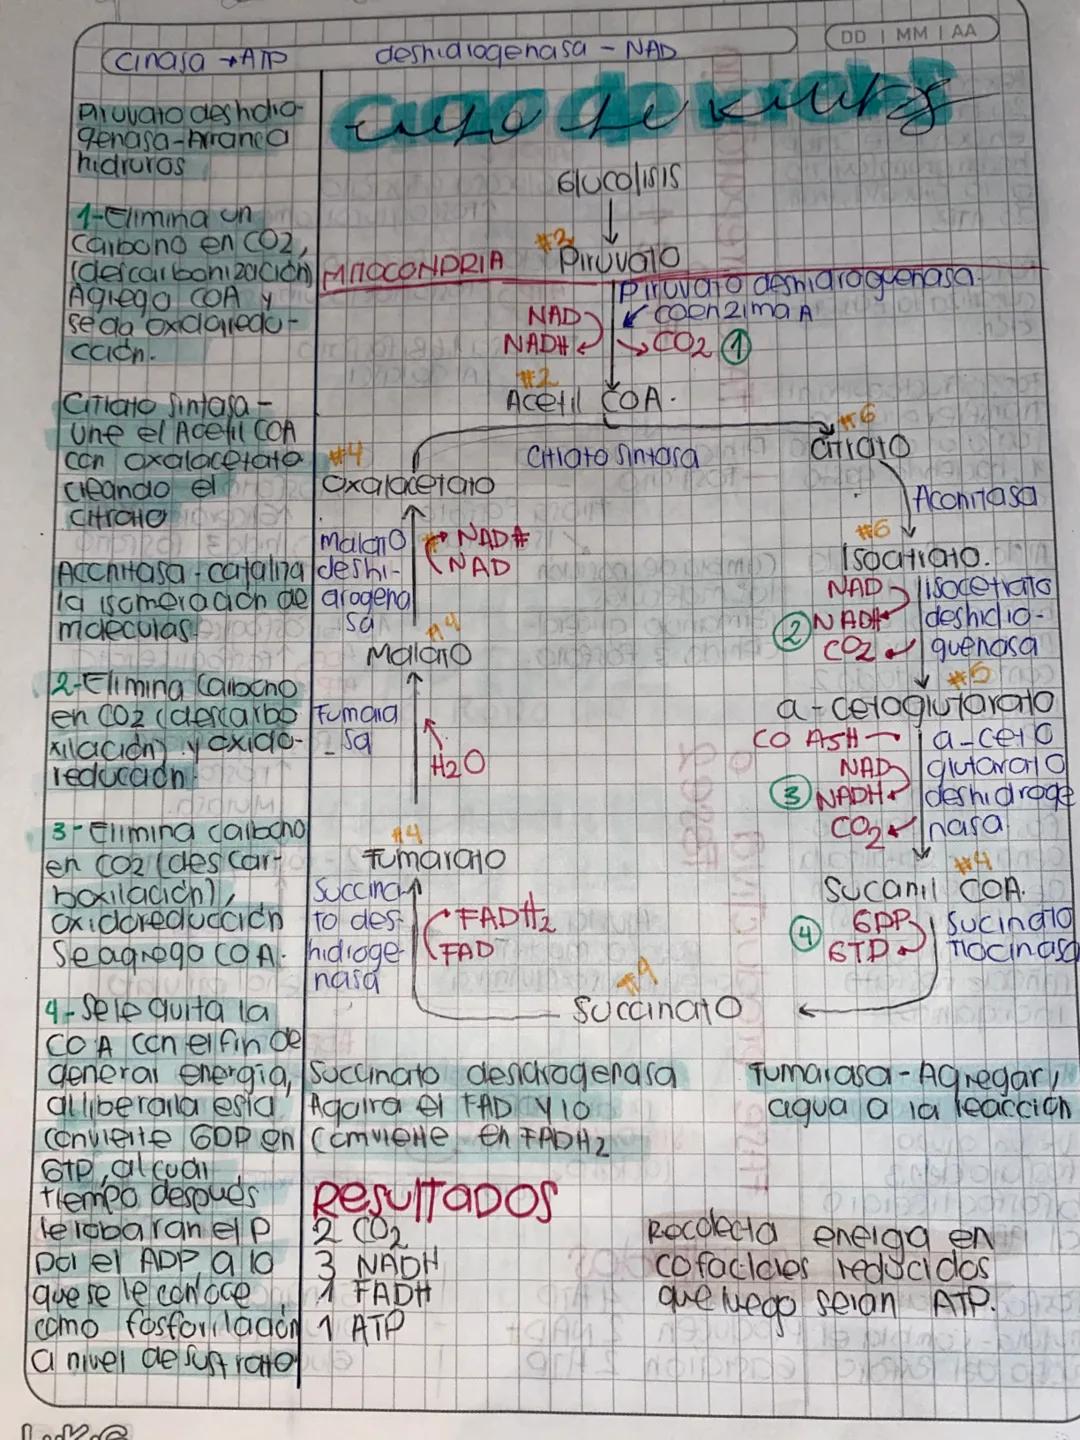 DD | MM | AA
cinasa → ATP
deshidrogenasa - NAD
Piruvato deshidro-
genasa - Arranca
hidruros
ciclo de krebs
Glucolisis
1- Elimina un
carbono en CO2,
(descarbonización)
Agrega COA y
se da oxidoredu-
cción.
#3
Piruvato
MITOCONDRIA
Piruvato deshidroguenasa.
NAD
coenzima A
NADH
CO2 1
#2
Acetil COA.
Citrato Sintasa -
une el Acetil COA
con oxalacetato
creando el
citrato
#6
Citrato
Citrato Sintasa
#4
Oxalacetato
Aconitasa
#6
Isocitrato.
malato
deshi-
drogena
sa
NADH
NAD
Aconitasa - cataliza
la isomeración de
moleculas.
NAD
NADH
CO2
2
isocetrato
deshidro-
guenasa
#4
Malato
2- Elimina Carbono
en CO2 (descarbo
xilación) y oxido-
reducción.
#5
a-cetoglutarato
Fumara
sa
H2O
CO ASH
NAD
NADH
CO2
3
a-ceto
glutarato
deshidroge
nasa
3- Elimina carbono
en CO2 (descar-
boxilación),
oxidoreducción
Se agrega COA.
#4
Fumarato
#4
Sucanil COA.
Succina-
to des-
hidroge-
nasa
FADH2
FAD
4
GDP
GTP
Sucinato
tiocinasa
#4
Succinato
4- Se le quita la
COA con el fin de
generar energia,
al liberarla esta
convierte GDP en
GTP, al cual
tiempo despues
le robaran el P
por el ADP a lo
que se le conoce
como fosforilación
a nivel de sustrato
Succinato desdrogenasa
Agarra el FAD y lo
convierte en FADH2
Fumarasa - Agregar
agua a la reacción
Resultados
2 CO2
3 NADH
1 FADH
1 ATP
Recolecta energia en
cofactores reducidos
que luego seran ATP.